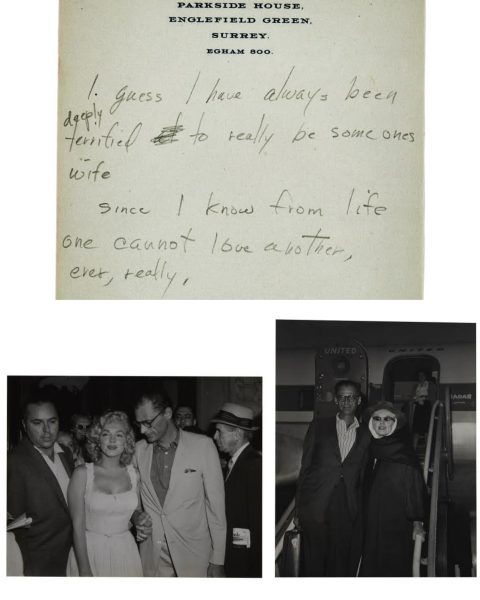 PARKSIDE HOUSE,
ENGLEFIELD GREEN,
SURREY.
EGHAM 800.
I guess I have always been
deeply
terrified to really be someones
wife
since I know from life
one cannot love another,
ever, really.
UNITED
UNITED